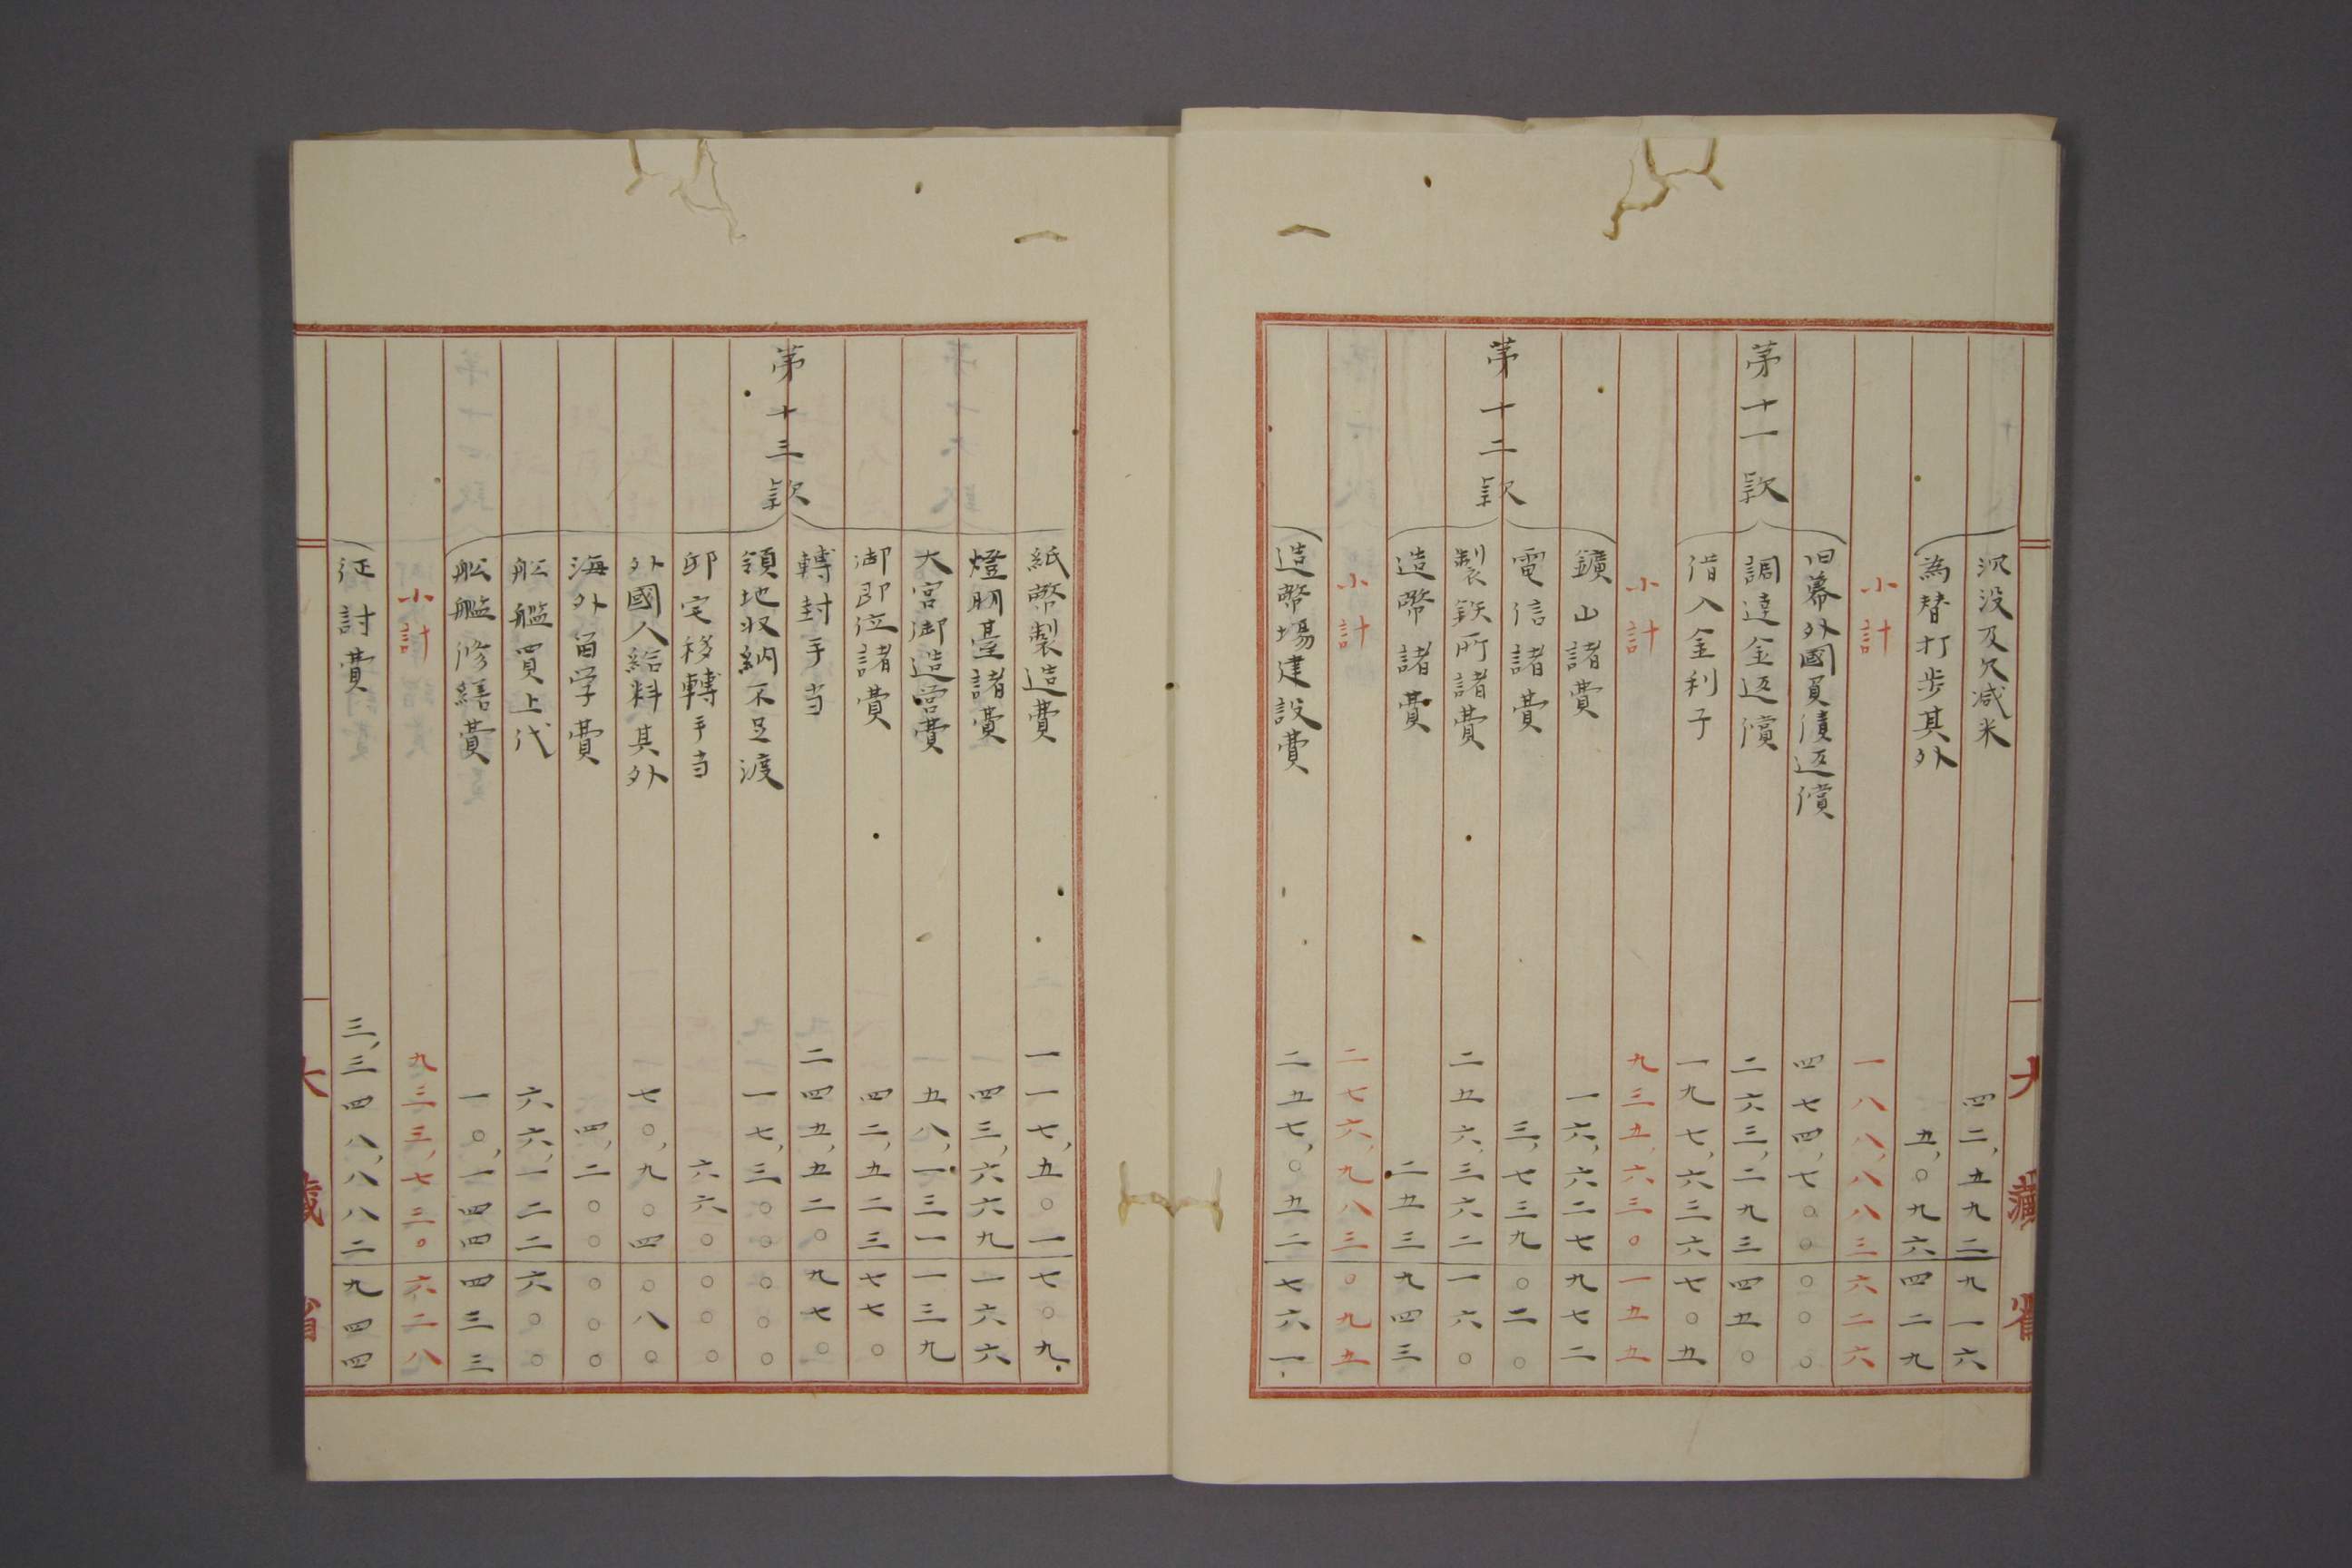 大藏省
沉没及欠減米 四二,五九二 九一六
為替打歩其外 五,〇九六 四二九
小計 一八八,八八三 六二六
第十一款
旧幕外國負債返償 四七四,七〇〇 〇〇〇
調達金返償 二六三,二九三 四五〇
借入金利子 一九七,六三六 七〇五
小計 九三五,六三〇 一五五
第十二款
鑛山諸費 一六,六二七 九七二
電信諸費 三,七三九 〇二〇
製鉄所諸費 二五六,三六二 一六〇
造幣諸費 二五三 九四三
小計 二七六,九八三 〇九五
造幣場建設費 二五七,〇五二 七六一
紙幣製造費 一一七,五〇一 七〇九
燈明臺諸費 四三,六六九 一六六
大宮御造営費 五八,一三一 一三九
御即位諸費 四二,五二三 七七〇
第十三款
轉封手当 二四五,五二〇 九七〇
領地収納不足渡 一七,三〇〇 〇〇〇
邸宅移轉手当 六六〇 〇〇〇
外國人給料其外 七〇,九〇四 〇八〇
海外留学費 四,二〇〇 〇〇〇
舩艦買上代 六六,一二二 六〇〇
舩艦修繕費 一〇,一四四 四三三
小計 九三三,七三〇 六二八
征討費 三,三四八,八八二 九四四
大藏省